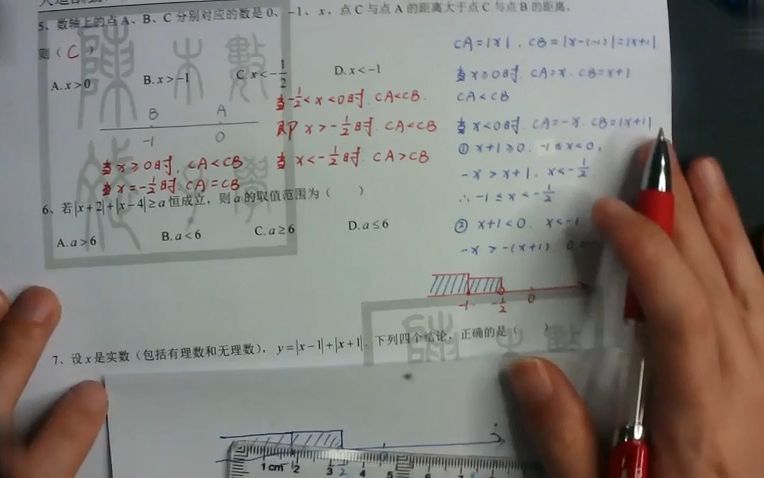 5、数轴上的点 A、B、C 分别对应的数是 0、-1、x，点 C 与点 A 的距离大于点 C 与点 B 的距离，
则（ C ）
A. x>0 B. x>-1 C. x<-1/2 D. x<-1
B A
-1 0
当x≥0时, CA<CB
当x=-1/2时, CA=CB
当-1/2<x<0时. CA<CB.
即 x>-1/2时. CA<CB
当 x<-1/2时. CA>CB
CA=|x|, CB=|x-(-1)|=|x+1|
当 x≥0时. CA=x. CB=x+1
CA<CB
当 x<0时. CA=-x. CB=|x+1|
① x+1≥0. -1≤x<0,
-x>x+1, x<-1/2
∴ -1≤x<-1/2
② x+1<0. x<-1
-x>-(x+1)
-1 -1/2 0
6、若|x+2|+|x-4|≥a 恒成立，则 a 的取值范围为（ ）
A. a>6 B. a<6 C. a≥6 D. a≤6
7、设 x 是实数（包括有理数和无理数），y=|x-1|+|x+1|，下列四个结论，正确的是（ ）
1cm 2 3 4 5